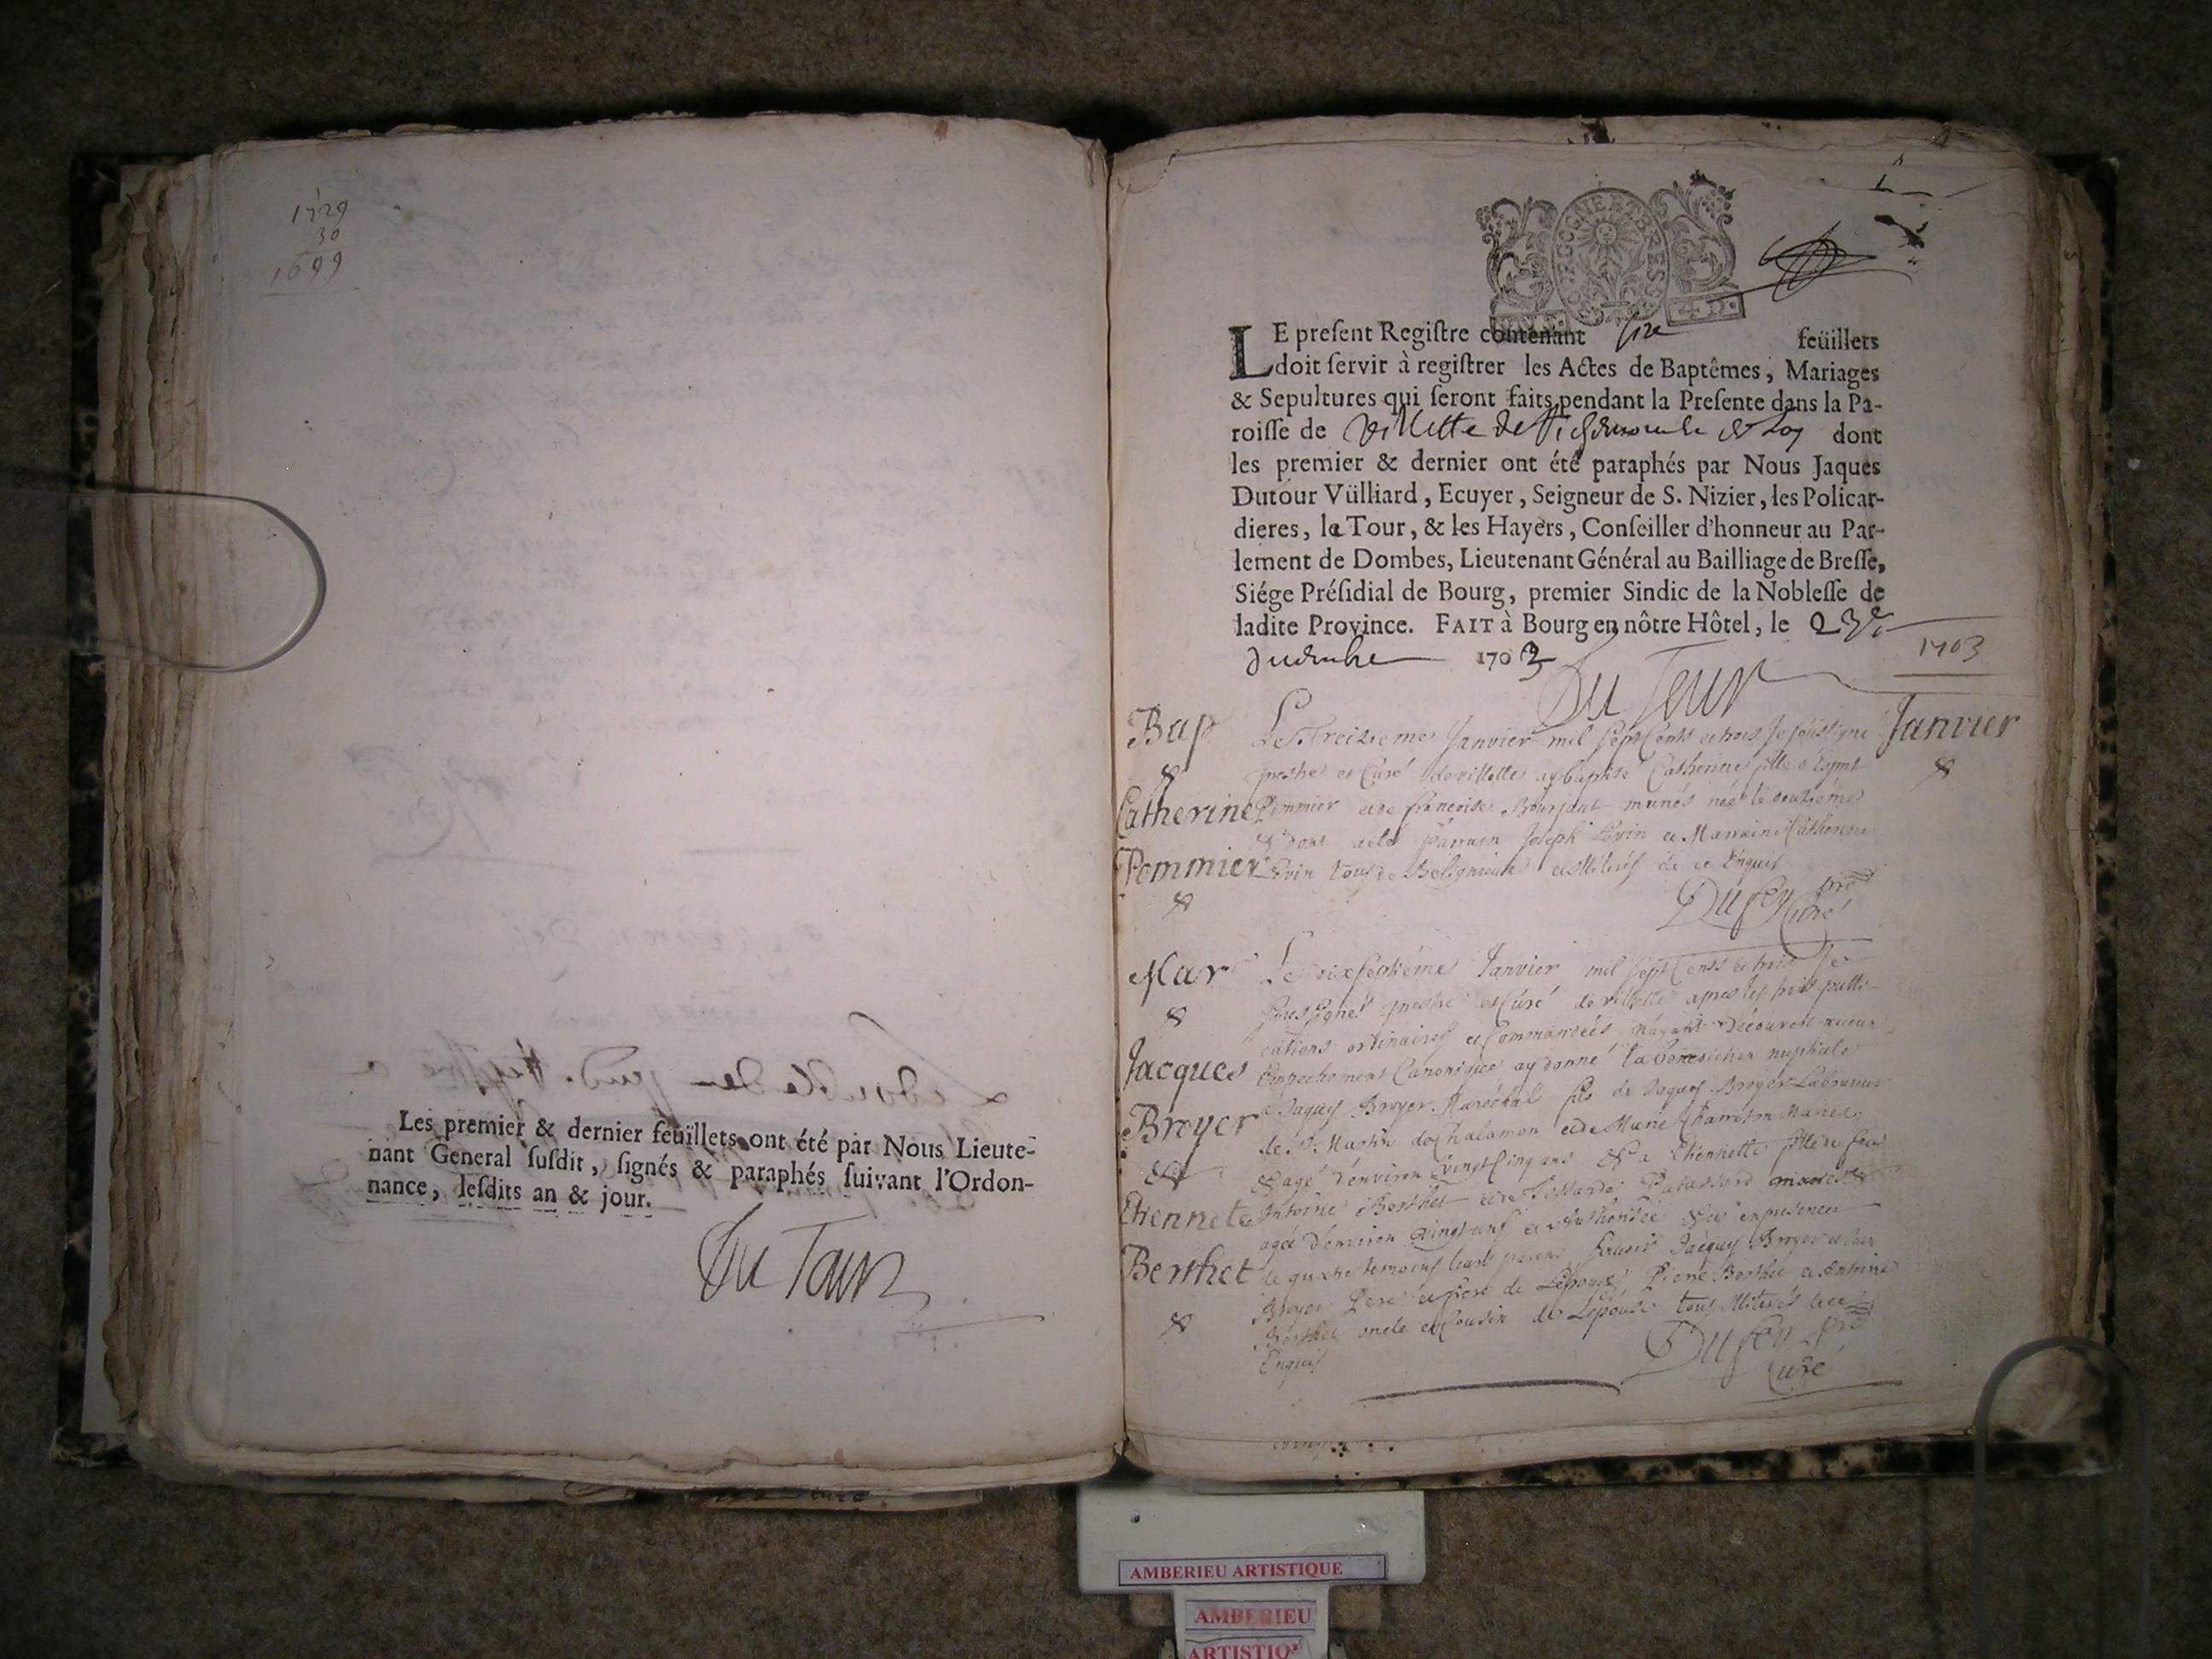 1729
30
1699
Les premier & dernier feüillets ont été par Nous Lieute-
nant General susdit, signés & paraphés suivant l'Ordon-
nance, lesdits an & jour.
Du Tour
BOURGOGNE ET BRESSE
LE present Registre contenant feüillets
doit servir à registrer les Actes de Baptêmes, Mariages
& Sepultures qui seront faits pendant la Presente dans la Pa-
roisse de Villette de dont
les premier & dernier ont été paraphés par Nous Jaques
Dutour Vülliard, Ecuyer, Seigneur de S. Nizier, les Policar-
dieres, la Tour, & les Hayers, Conseiller d'honneur au Par-
lement de Dombes, Lieutenant Général au Bailliage de Bresse,
Siége Présidial de Bourg, premier Sindic de la Noblesse de
ladite Province. FAIT à Bourg en nôtre Hôtel, le 23e
1703
1703
Du Tour
Bap
Catherine
Pommier
Janvier
Le Treizieme Janvier mil sept cents et trois Je soussigné
prestre et Curé de villette ay baptisé Catherine fille à
Pommier et de francoise mariés née le
parrain Joseph et Marraine Catherine
tous de et Illiterés de ce Enquis
Dufey pre
Curé
Mar
Jacques
Broyer
&
Etiennete
Berthet
Le dix septième Janvier mil sept cents et trois Je
soussigné prestre et Curé de villette apres les trois publi-
cations ordinaires et Commandées n'ayant découvert aucun
Empechement Canonique ay donné la benediction nuptiale
à Jaques Broyer Maréchal fils de Jaques Broyer Laboureur
de St Martin de Chalamon et de Mariés
& agé d'environ vingt cinq ans & a Etiennette fille de feu
Antoine Berthet et de
agée d'environ vingt et Authorisée en presence
de quatre temoins leurs parens Jacques Broyer
Broyer Pere et frere de Lépoux Pierre Berthet et Antoine
Berthet oncle et Cousin de Lepouse tous Illiterés de ce
Enquis
Dufey pre
Curé
AMBERIEU ARTISTIQUE
AMBERIEU
ARTISTIQ